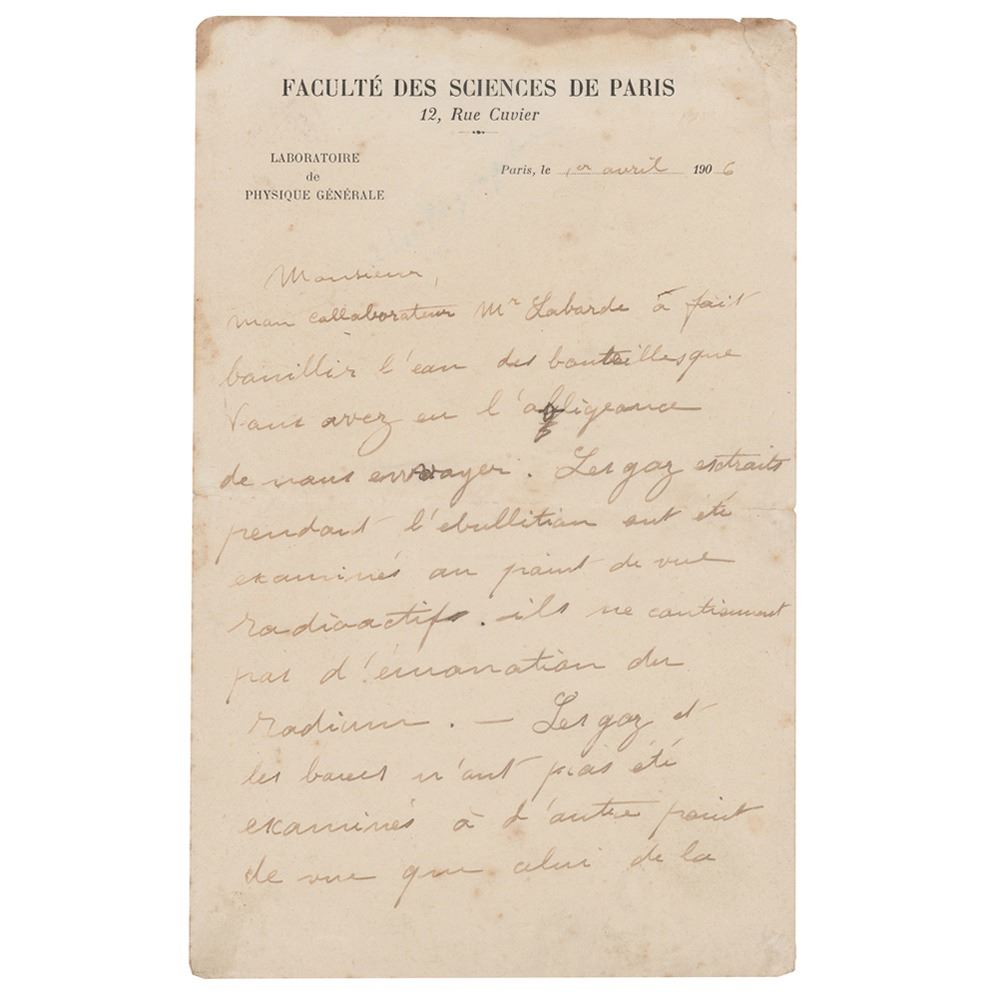 FACULTÉ DES SCIENCES DE PARIS
12, Rue Cuvier
LABORATOIRE
de
PHYSIQUE GÉNÉRALE
Paris, le 1er avril 1906
Monsieur,
mon collaborateur Mr Laborde à fait
bouillir l'eau des bouteilles que
vous avez eu l'obligeance
de nous envoyer. Les gaz extraits
pendant l'ebullition ont été
examinés au point de vue
radioactifs. ils ne contiennent
pas d'émanation du
radium. — Les gaz et
les boues n'ont pas été
examinés à d'autre point
de vue que celui de la